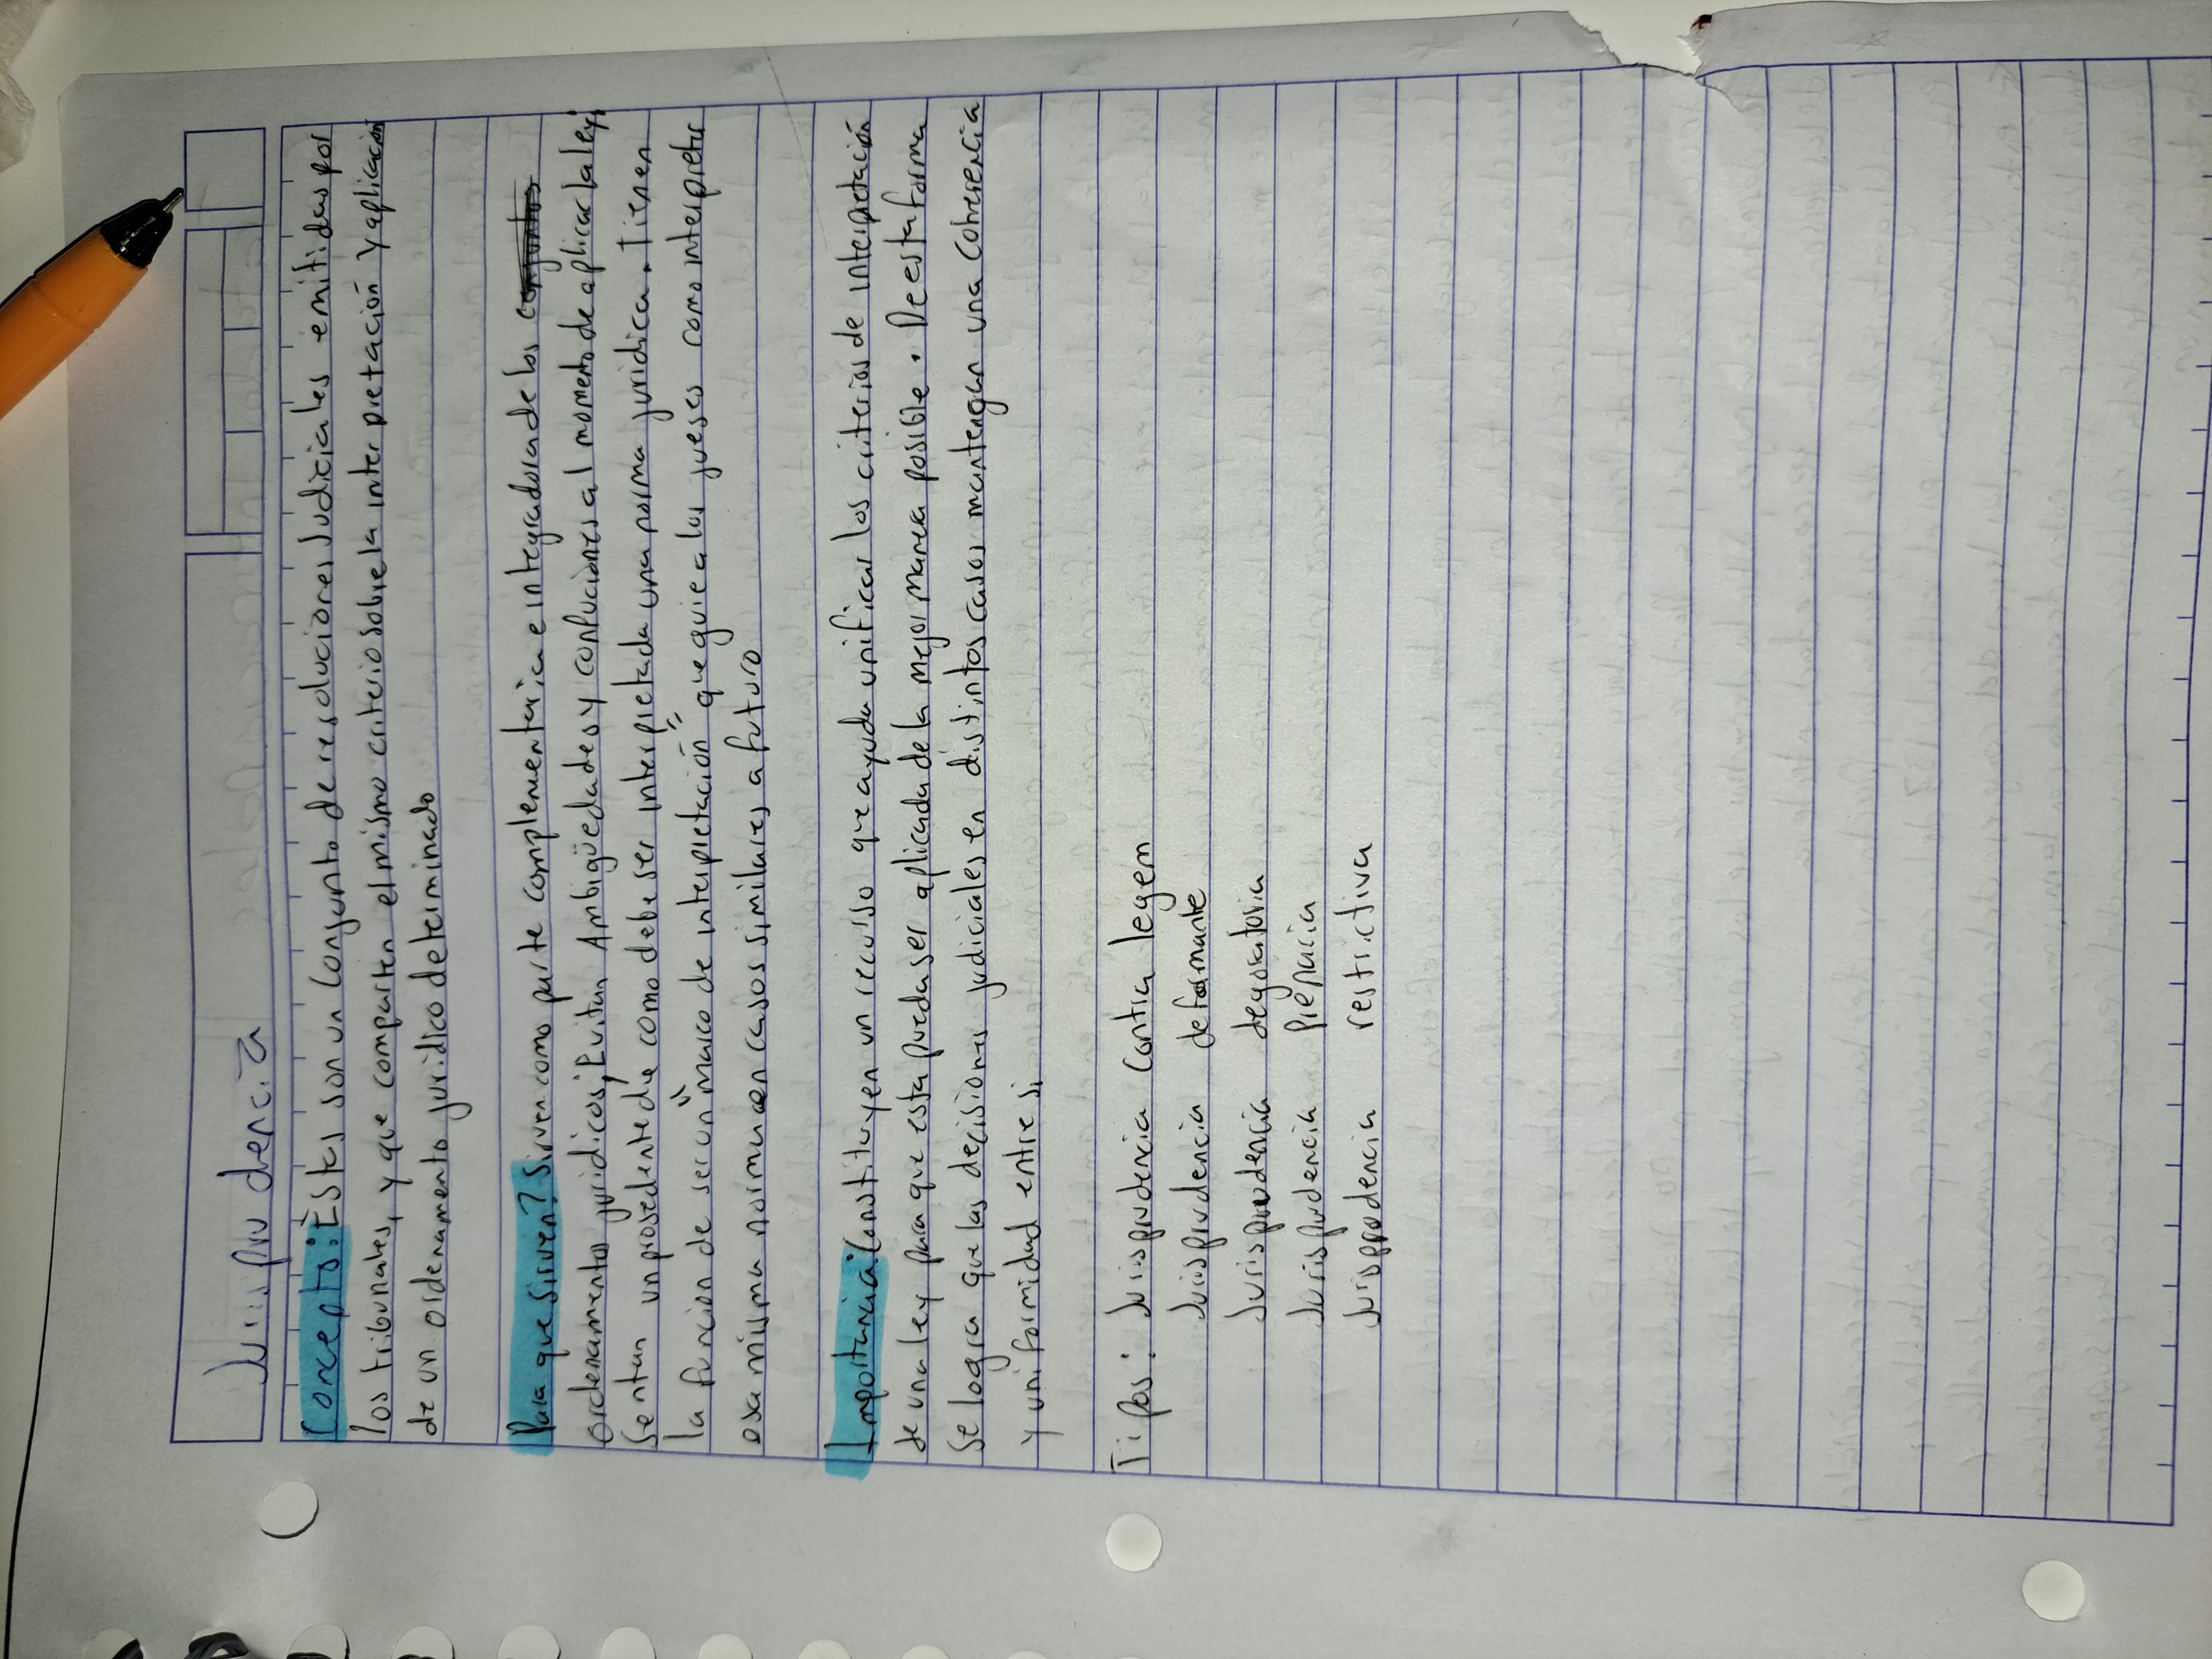 Jurisprudencia
Concepto: Estas son un conjunto de resoluciones Judiciales emitidas por
los tribunales, y que comparten el mismo criterio sobre la interpretación y aplicación
de un ordenamento juridico determinado
Para que sirven? Sirven como parte complementaria e integradora de los
ordenamentos juridicos; Evitan Ambigüedades y confuciones al momento de aplicar la ley;
Sentan un prosedente de como debe ser interpretada una norma juridica. Tienen
la funcion de ser un "marco de interpretación" que guie a los jueses como interpretar
esa misma norma en casos similares a futuro
Importancia: Constituyen un recurso que ayuda unificar los criterios de interpretación
de una ley para que esta pueda ser aplicada de la mejor manera posible. De esta forma
se logra que las decisiones judiciales en distintos casos mantengan una coherencia
y uniformidad entre si
Tipos: Jurisprudencia contra legem
Jurisprudencia deformante
Jurisprudencia derogatoria
Jurisprudencia
Jurisprudencia restrictiva